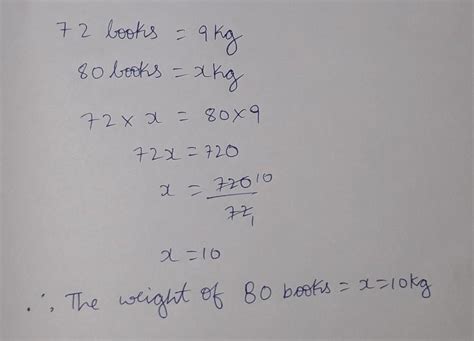 72 books = 9kg
80 books = xkg
72 × x = 80×9
72x = 720
x = 720 10
72 1
x = 10
∴ The weight of 80 books = x = 10kg